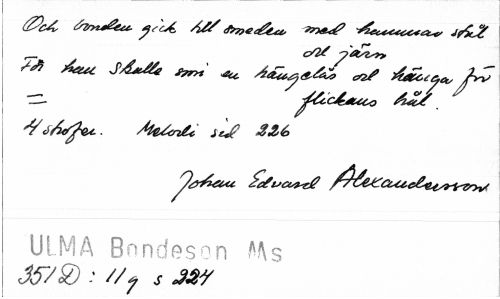 Och bonden gick till smeden med hammar stål
och järn
För han skulle smi en hängelås och hänga för
= flickans hål.
4 strofer. Melodi sid 226
Johan Edvard Alexandersson
ULMA Bondeson Ms
351 D : 11 q s 224